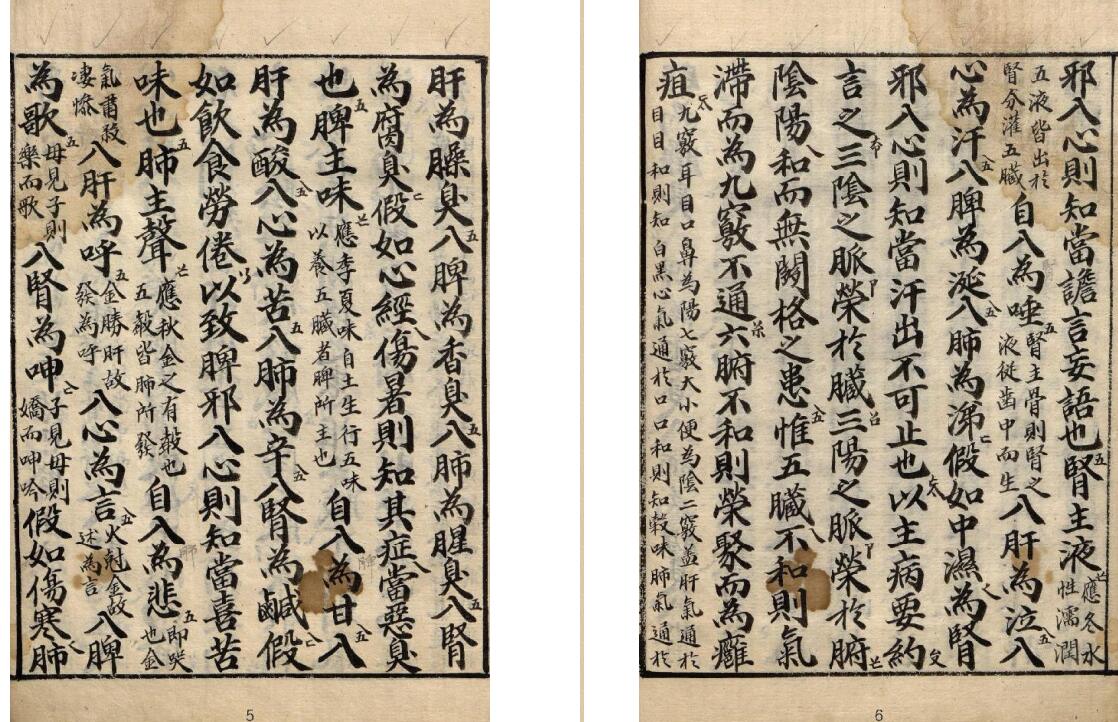 肝為臊臭入脾為香臭入肺為腥臭入腎
為腐臭假如心經傷暑則知其症當惡臭
也脾主味應季夏味自土生行五味以養五臟者脾所主也自入為甘入
肝為酸入心為苦入肺為辛入腎為鹹假
如飮食勞倦以致脾邪入心則知當喜苦
味也肺主聲應秋金之有殸也五殸皆肺所發自入為悲即哭也金
氣肅殺凄慘入肝為呼金勝肝故發為呼入心為言火尅金故述為言入脾
為歌母見子則樂而歌入腎為呻子見母則嬌而呻吟假如傷寒肺
5
邪入心則知當譫言妄語也腎主液應冬水性濡潤
五液皆出於腎分灌五臟自入為唾腎主骨則腎之液從齒中而生入肝為泣入
心為汗入脾為涎入肺為涕假如中濕為腎
邪入心則知當汗出不可止也以主病要約
言之三陰之脈榮於臟三陽之脈榮於腑
陰陽和而無關格之患惟五臟不和則氣
滯而為九竅不通六腑不和則榮聚而為癰
疽九竅耳目口鼻為陽七竅大小便為陰二竅盖肝氣通於目目和則知白黑心氣通於口口和則知穀味肺氣通於
6